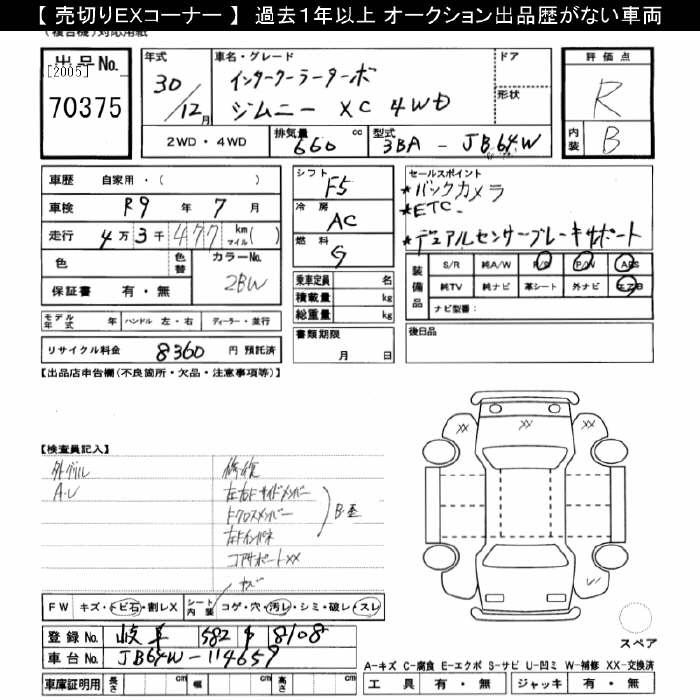 【 売切りEXコーナー 】 過去1年以上 オークション出品歴がない車両
(複合機)対応用紙
出品No.
[2005]
70375
年式
30/12月
車名・グレード
インタークーラーターボ
ジムニー XC 4WD
ドア
形状
評価点
R
内装 B
2WD・4WD
排気量 660 cc
型式 3BA - JB64W
車歴 自家用・( )
車検 R9 年 7 月
走行 4万3千477 km マイル( )
色
色替
カラーNo. ZBW
保証書 有・無
モデル年式 年
ハンドル 左・右
ディーラー・並行
リサイクル料金 8360 円 預託済
シフト F5
冷房 AC
燃料 G
乗車定員 名
積載量 kg
総重量 kg
書類期限
月 日
セールスポイント
*バックカメラ
*ETC
*デュアルセンサーブレーキサポート
装備品
S/R 純A/W P/S P/W ABS
純TV 純ナビ 革シート 外ナビ エアB
ナビ型番:
後日品
【出品店申告欄(不良箇所・欠品・注意事項等)】
【検査員記入】
A・U
修復
左右Fサイドメンバー
Fクロスメンバー
左Fインパネ
コアサポートXX
B・歪
XX
XX
XX
FW キズ・トビ石・割レX
シート内装 コゲ・穴・汚レ・シミ・破レ・スレ
登録No. 岐阜 582 す 8108
車台No. JB64W-114659
車庫証明用 長さ cm 幅 cm 高さ cm
スペア
A-キズ C-腐食 E-エクボ S-サビ U-凹ミ W-補修 XX-交換済
工具 有・無 ジャッキ 有・無